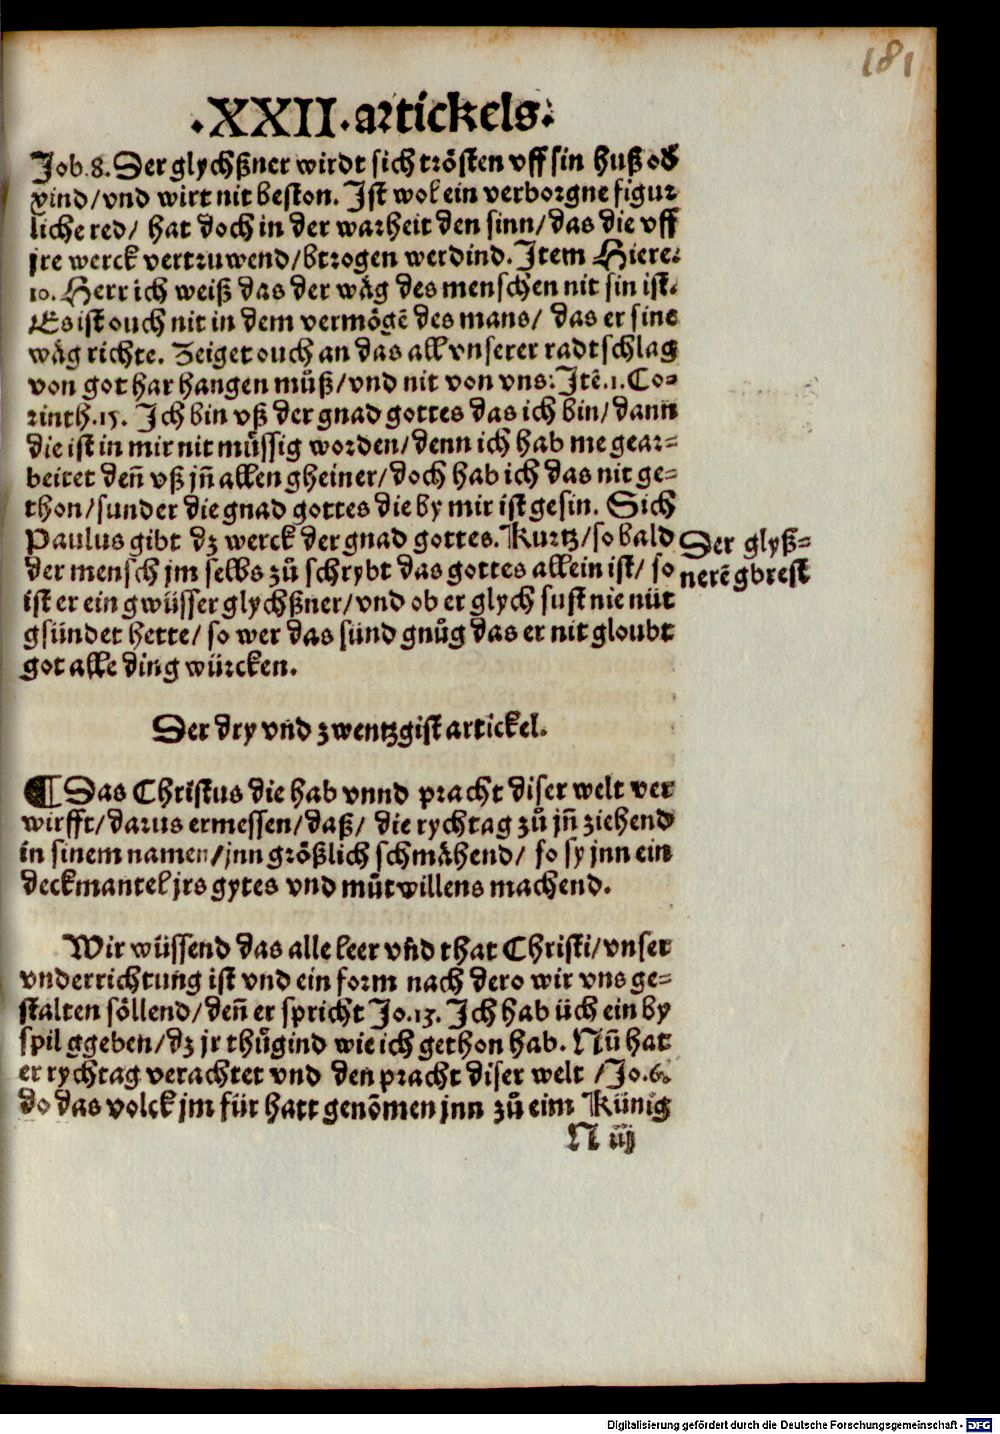 181
.XXII.artickels.
Job.8. Der glychßner wirdt sich trösten vff sin huß od
vind/vnd wirt nit beston. Ist wol ein verborgne figur
liche red/ hat doch in der warheit den sinn/das die vff
jre werck vertruwend/btrogen werdind. Item Hiere.
10. Herr ich weiß das der wäg des menschen nit sin ist.
Es ist ouch nit in dem vermögē des mans/ das er sine
wäg richte. Zeiget ouch an das all vnserer radtschlag
von got har hangen můß/vnd nit von vns: Itē.1.Co-
rinth.15. Ich bin vß der gnad gottes das ich bin/dann
die ist in mir nit müssig worden/denn ich hab me gear-
beitet deñ vß jñ allen gheiner/doch hab ich das nit ge-
thon/sunder die gnad gottes die by mir ist gesin. Sich
Paulus gibt dz werck der gnad gottes. Kurtz/so bald
der mensch jm selbs zů schrybt das gottes allein ist/ so
ist er ein gwüsser glychßner/vnd ob er glych sust nie nüt
gsündet hette/ so wer das sünd gnůg das er nit gloubt
got alle ding würcken.
Der glyß-
nerē gbrest
Der dry vñd zwentzgist artickel.
¶ Das Christus die hab vnnd pracht diser welt ver
wirfft/darus ermessen/daß/ die rychtag zů jñ ziehend
in sinem namen/jnn größlich schmähend/ so sy jnn ein
deckmantel jrs gytes vnd můtwillens machend.
Wir wüssend das alle leer vñd that Christi/vnser
vnderrichtung ist vnd ein form nach dero wir vns ge-
stalten söllend/deñ er spricht Jo.13. Ich hab üch ein by
spil ggeben/dz jr thůgind wie ich gethon hab. Nů hat
er rychtag verachtet vnd den pracht diser welt /Jo.6.
do das volck jm für hatt genōmen jnn zů eim Künig
N iij
Digitalisierung gefördert durch die Deutsche Forschungsgemeinschaft - DFG